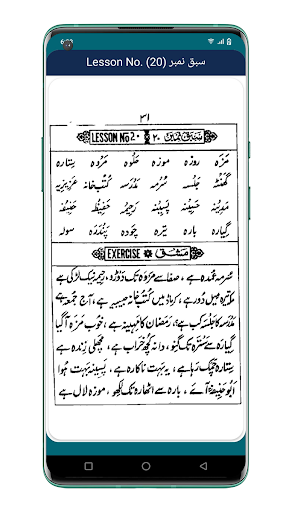 Lesson No. (20) سبق نمبر
۳۱
LESSON No 20 سبق نمبر ۲۰
مَزَہ روزہ موزہ حلوہ مَروَہ ستارہ
گھنٹہ جلسہ سُرمہ مدرسہ کتب خانہ عزیزیہ
مدینہ حَسِینَہ پسینہ رحیمہ حفیظہ حنیفہ
گیارہ بارہ تیرہ چودہ پندرہ سولہ
EXERCISE مشق
سُرمہ عمدہ ہے، صفا سے مروہ تک دوڑو، رحیمہ نیک لڑکی ہے
مدرسہ کا جلسہ کب ہے، رمضان کا مہینہ ہے، خوب مزہ آگیا
گیارہ سے سترہ تک گنو، دانہ کچھ خراب ہے، مچھلی زندہ ہے
ستارہ چمک رہا ہے، یہ بہت ناکارہ ہے، پسینہ بہت ہوا
ابو حنیفہ آئے، بارہ سے اٹھارہ تک لکھو، موزہ لال ہے